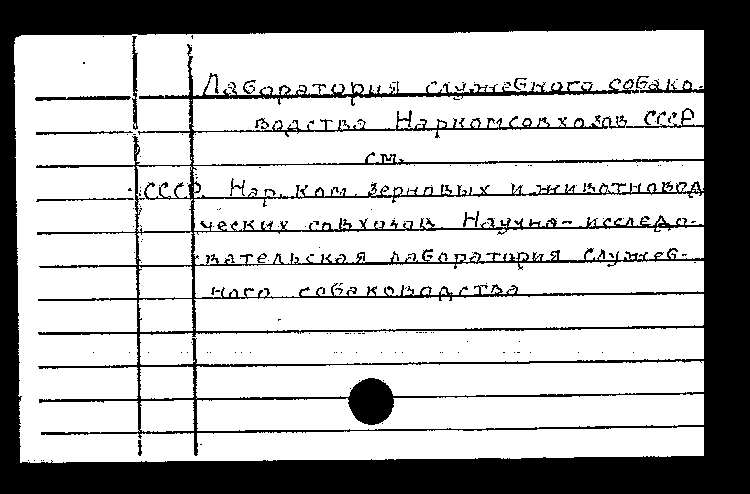 Лаборатория служебного собако-
водства Наркомсовхозов СССР
см.
СССР. Нар. ком. зерновых и животновод
ческих совхозов. Научно-исследо-
вательская лаборатория служеб-
ного собаководства